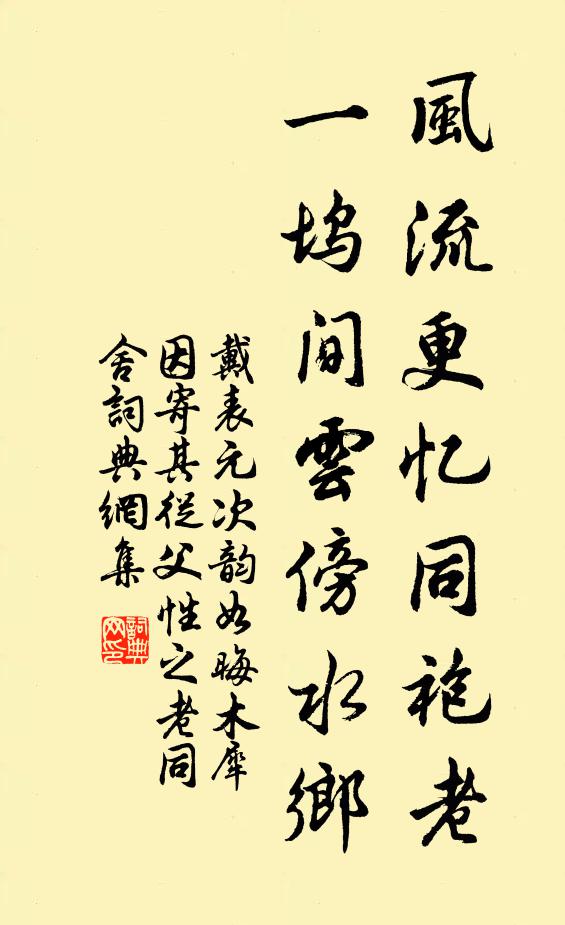 風流更忆同袍老
一坞间雲傍水鄉
戴表元次韵如晦木犀
因寄其從父性之老同
舍詞典網集
詞典
网印